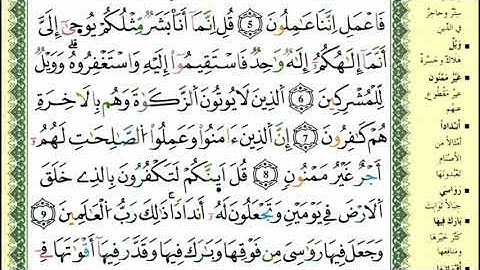 فَاعْمَلِ اِنَّنَا عَٰمِلُونَ 5 قُلِ اِنَّمَآ أَنَا بَشَرٌ مِّثْلُكُمْ يُوحَىٰٓ إِلَىَّ
أَنَّمَآ إِلَٰهُكُمُۥٓ إِلَٰهٌ وَٰحِدٌ فَاسْتَقِيمُوٓا إِلَيْهِ وَاسْتَغْفِرُوهُ وَوَيْلٌ
لِّلْمُشْرِكِينَ 6 الذِينَ لَا يُوتُونَ الزَّكَوٰةَ وَهُم بِالَاخِرَةِ
هُمْ كَٰفِرُونَ 7 إِنَّ الذِينَ ءَامَنُوا وَعَمِلُوا الصَّٰلِحَٰتِ لَهُمُۥٓ
أَجْرٌ غَيْرُ مَمْنُونٍ 8 قُلَ اَئِنَّكُمْ لَتَكْفُرُونَ بِالذِے خَلَقَ
اَلَارْضَ فِے يَوْمَيْنِ وَتَجْعَلُونَ لَهُۥٓ أَندَاداً ذَٰلِكَ رَبُّ الْعَٰلَمِينَ 9
وَجَعَلَ فِيهَا رَوَٰسِىَ مِن فَوْقِهَا وَبَٰرَكَ فِيهَا وَقَدَّرَ فِيهَآ أَقْوَٰتَهَا فِےٓ
سِتْرٌ وحاجزٌ
في الدّين
وَيْلٌ
هَلاكٌ وحَسْرَة
غَيْرُ مَمْنُونٍ
غَيْرُ مَقْطُوعٍ
عنهم
أنْدَاداً
أمْثالاً من
الأصنام
تَعْبُدُونَها
رَواسيَ
جِبالاً ثوابتَ
بَارَكَ فيها
كَثّرَ خَيْرَها
ومنافعها